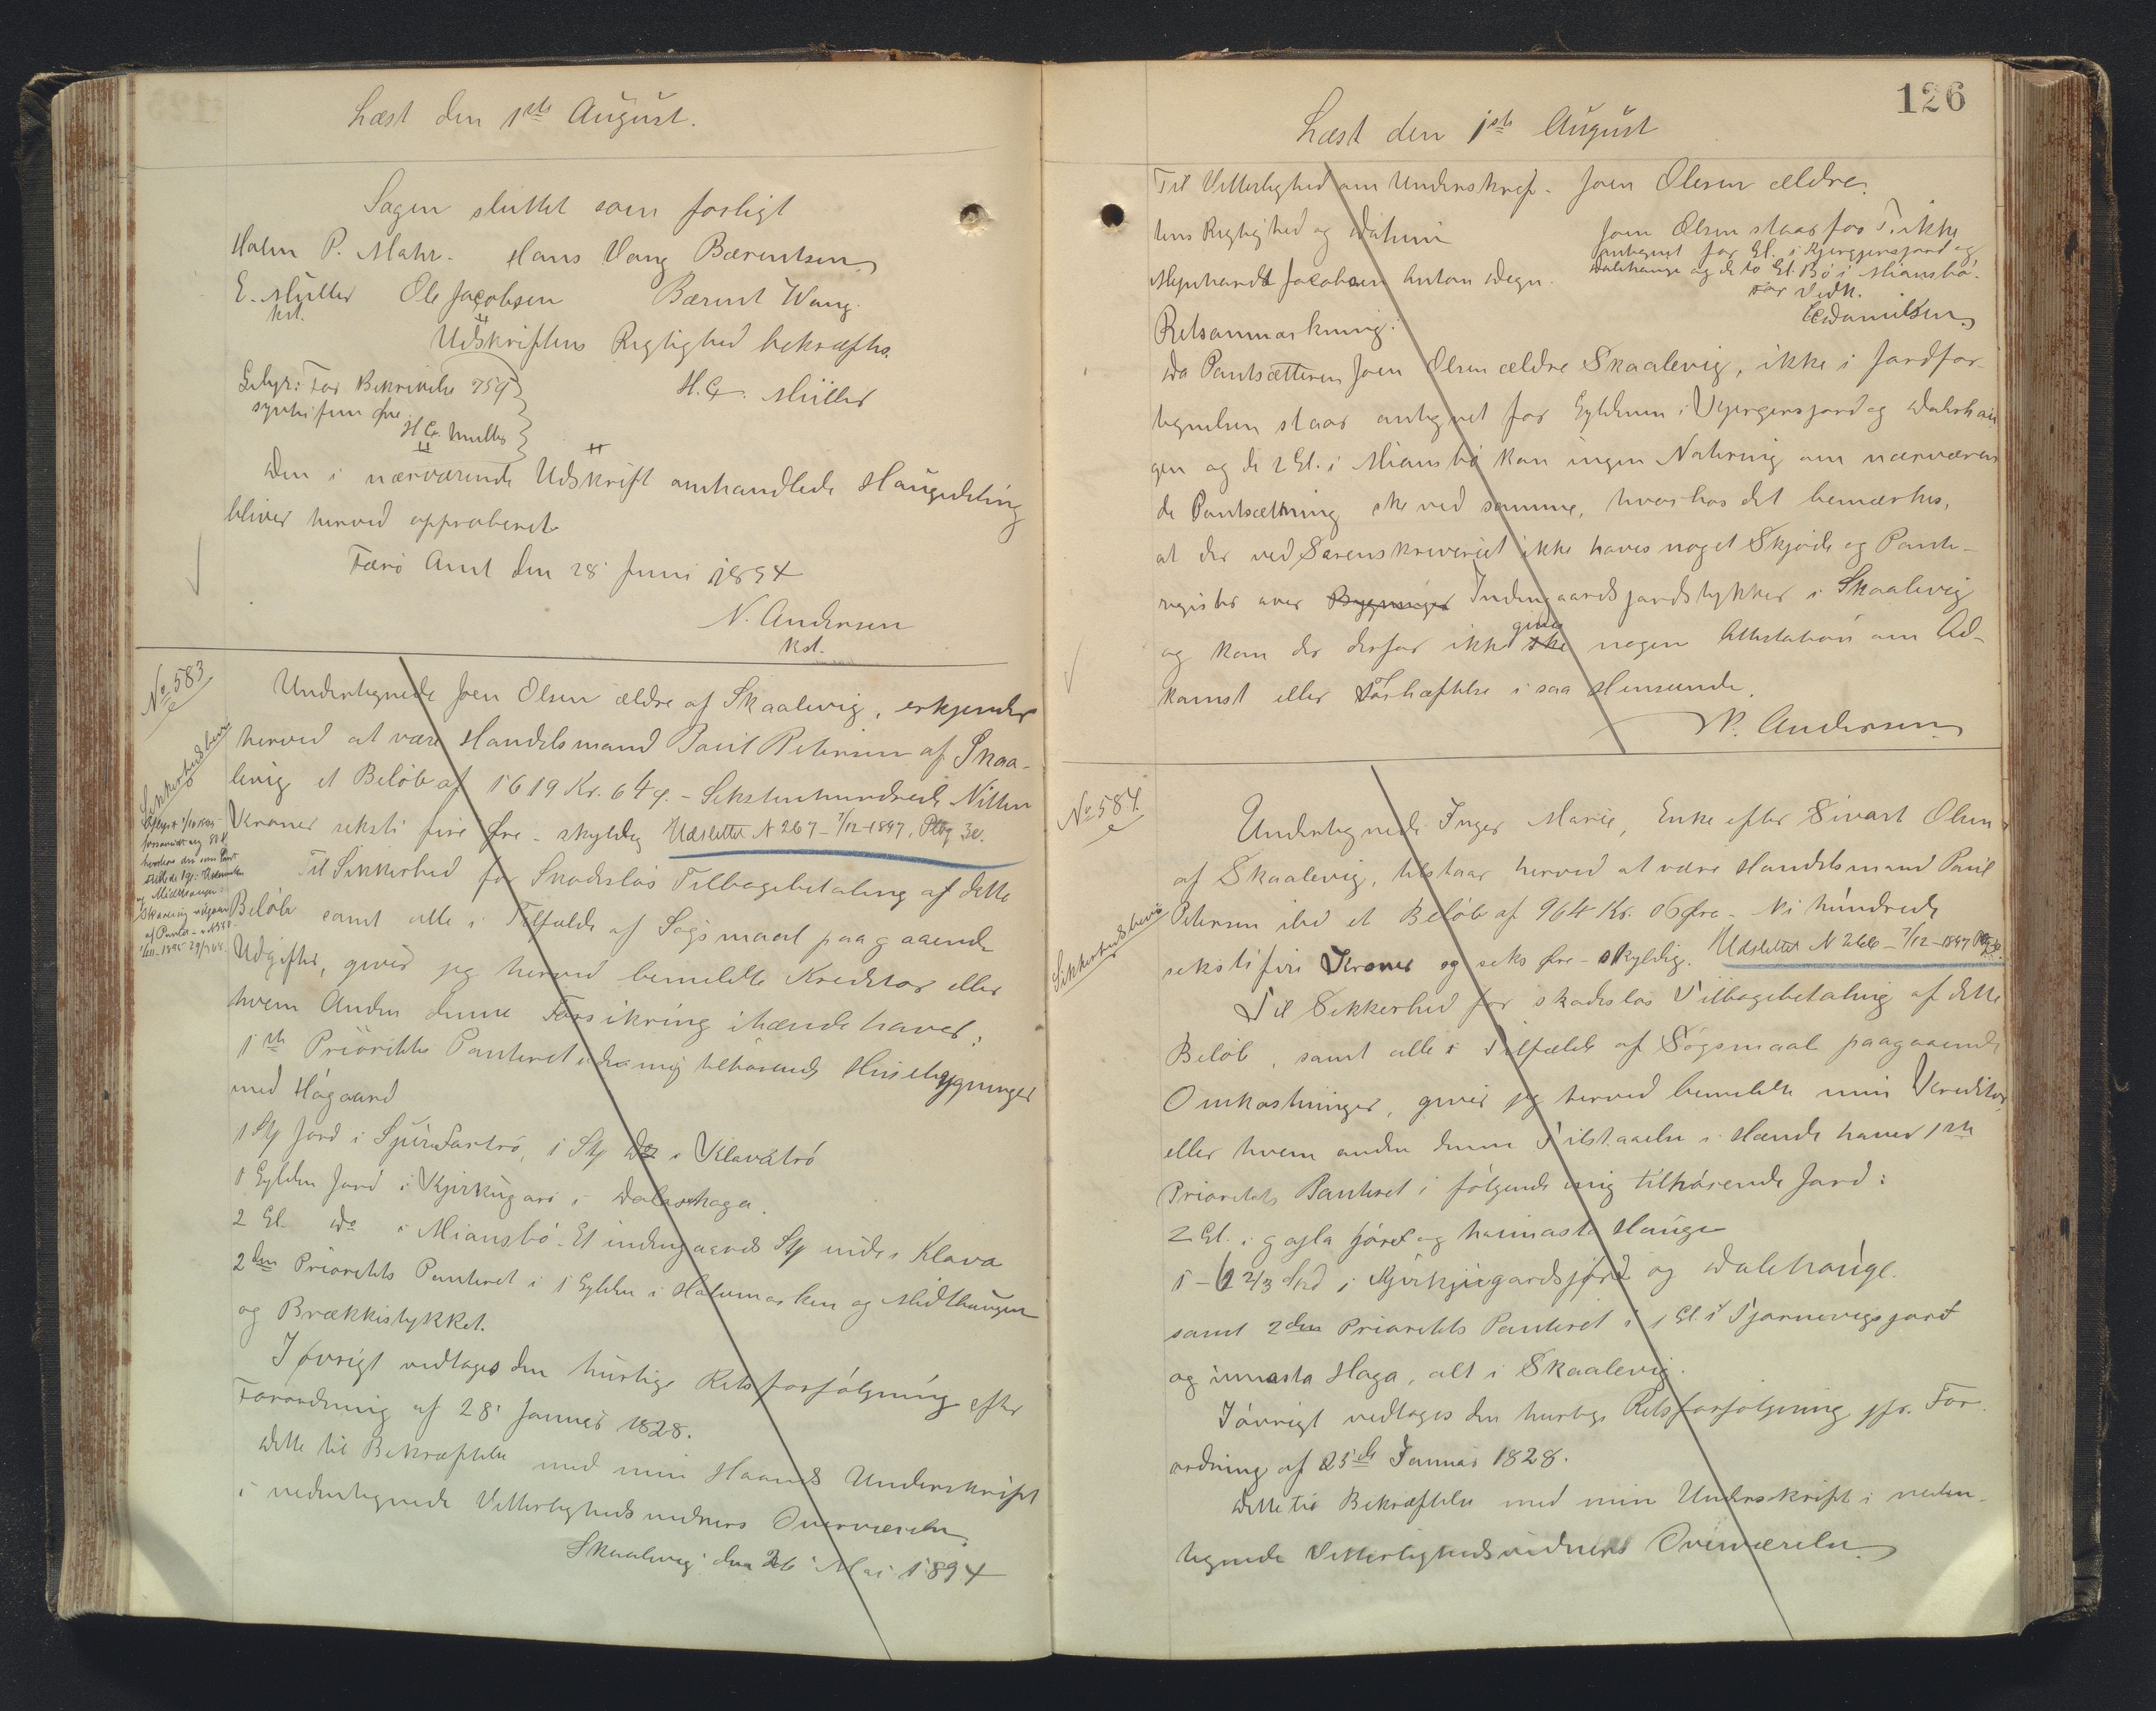 Læst den 1ste August.
Sagen sluttet som forligt
Holm P. Mohr. Hans Vang Bærentsen
E. Müller Ole Jacobsen Bærent Wang.
kst.
Udskriftens Rigtighed bekræftes.
Gebyr: For Bekrivelse 75 Ø H. C. Müller
sytti fem Øre
H C. Müller
Den i nærværende Udskrift omhandlede Haugedeling
bliver herved approberet
Færø Amt den 28 Juni 1894
N. Andersen
kst.
No 583
Undertegnede Joen Olsen ældre af Skaalevig, erkjender
herved at være Handelsmand Poul Petersen af Skaa-
levig et Beløb af 1619 Kr. 64 Ø. - Sekstenhundrede Nitten
Kroner seksti fire Øre - skyldig Udslettet N 267 - 7/12 - 1897. Pbg 3e.
Sikkerhedsbrev
Til Sikkerhed for Skadesløs Tilbagebetaling af dette
Beløb samt alle i Tilfælde af Søgsmaal paagaaende
Udgifter, giver jeg herved bemeldte Kreditor eller
hvem Anden denne Forsikring ihændehaver:
1ste Prioritets Panteret i de mig tilhørende Husebygninger
med Høgaard
1 Sty Jord i Sjurdartrø, 1 Sty Do i Klavatrø
1 Gylden Jord i Kjirkugari i Dalashaga.
2 Gl. Do i Miansbø - Et indengaards Sty nide i Klava
2den Prioritets Panteret i 1 Gylden i Halumarken og Midthaugen
og Brækkistykket.
I øvrigt vedtages den hurtige Retsforfølgning efter
Forordning af 28 Januar 1828.
Dette til Bekræftelse med min Haands Underskrift
i nedentegnede Vitterlighedsvidners Overværelse
Skaalevig den 26 Mai 1894
126
Læst den 1ste August
Til Vitterlighed om Underskrif- Joen Olesen ældre.
tens Rigtighed og Datum
Joen Olsen staar for T. ikke
antegnet for Gl. i Kjergjersjord og
Dalehauge og de to Gl. Bø i Miansbø.
Mejnhardt Jacobsen Anton Degn.
For Vedk.
E Danielsen
Retsanmærkning:
Da Pantsætteren Joen Olsen ældre Skaalevig, ikke i Jordfor-
tegnelsen staar antegnet for Gyldenen i Kjergersjord og Dalehau
gen og de 2 Gl. i Miansbø kan ingen Notering om nærværen
de Pantsætning ske ved samme, hvorhos det bemærkes,
at der ved Sorenskriveriet ikke haves noget Skjøde og Pante-
register over Bygninger Indengaardsjordstykker i Skaalevig
og kan der derfor ikke ske gives nogen Attestation om Ad-
komst eller Forhæftelse i saa Henseende.
N. Andersen
No 584.
Undertegnede Inger Marie, Enke efter Sivart Olsen
af Skaalevig, tilstaar herved at være Handelsmand Poul
Petersen ibd et Beløb af 964 Kr. 06 Øre - Ni hundrede
seksti fire Kroner og seks Øre - skyldig. Udslettet N 266 - 7/12 - 1897 Pbg 3e.
Sikkerhedsbrev
Til Sikkerhed for skadesløs Tilbagebetaling af dette
Beløb, samt alle i Tilfælde af Søgsmaal paagaaende
Omkostninger, giver jeg herved bemeldte min Kreditor,
eller hvem anden denne Tilstaaelse i Hænde haver 1ste
Prioritets Panteret i følgende mig tilhørende Jord:
2 Gl. i gajla jørd og haimasta Hauge
1 - 6 2/3 Skd i Kjirkjugardsjørd og Dalehauge.
samt 2den Prioritets Panteret i 1 Gl. i Tjørnevigsjord
og innasta Haga, alt i Skaalevig.
I øvrigt vedtages den hurtige Retsforfølgning jfr. For-
ordning af 25de Januar 1828.
Dette til Bekræftelse med min Underskrift i neden-
tegnede Vitterlighedsvidners Overværelse